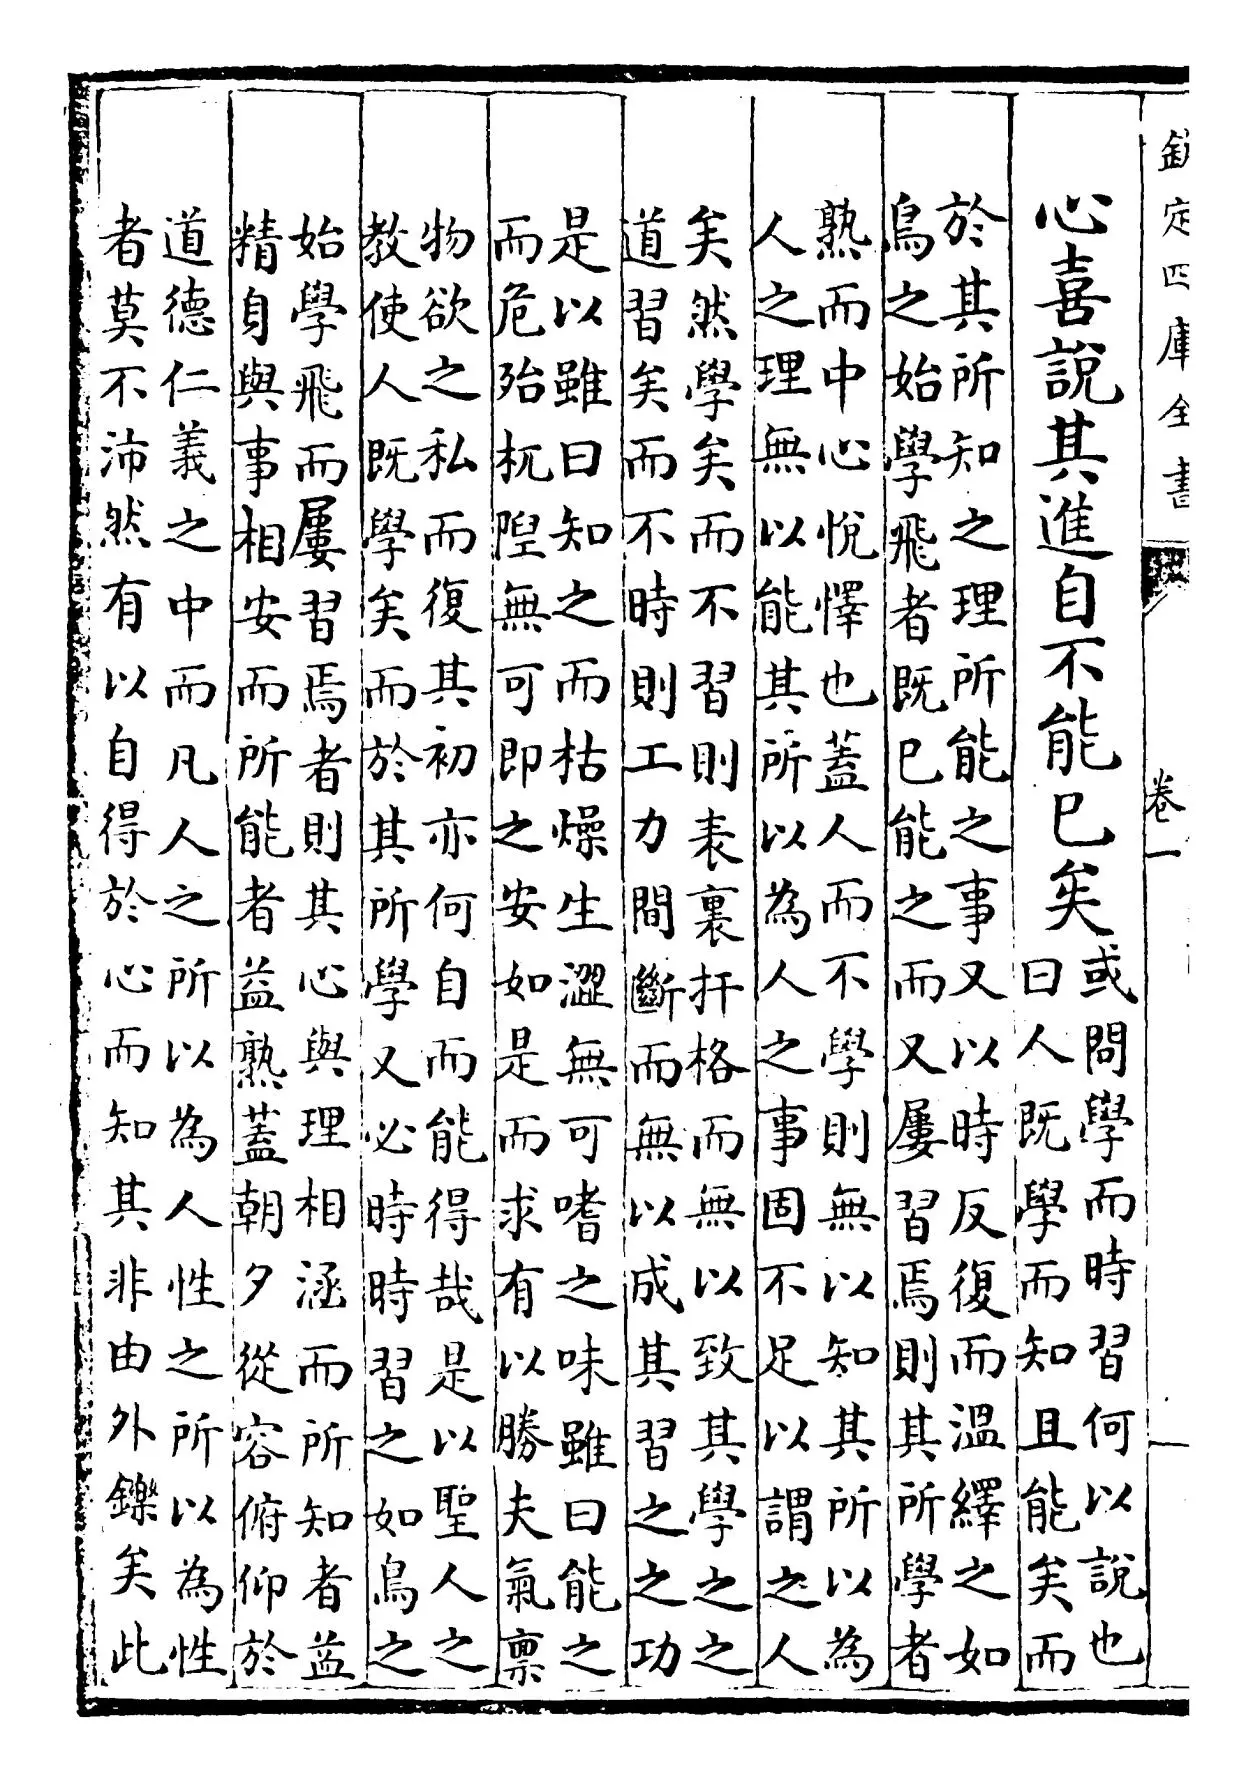 欽定四庫全書
卷一
心喜說其進自不能已矣
或問學而時習何以說也
曰人既學而知且能矣而
於其所知之理所能之事又以時反復而溫繹之如
鳥之始學飛者既已能之而又屢習焉則其所學者
熟而中心悅懌也蓋人而不學則無以知其所以為
人之理無以能其所以為人之事固不足以謂之人
矣然學矣而不習則表裏扞格而無以致其學之之
道習矣而不時則工力間斷而無以成其習之之功
是以雖曰知之而枯燥生澀無可嗜之味雖曰能之
而危殆杌隉無可即之安如是而求有以勝夫氣禀
物欲之私而復其初亦何自而能得哉是以聖人之
教使人既學矣而於其所學又必時時習之如鳥之
始學飛而屢習焉者則其心與理相涵而所知者益
精身與事相安而所能者益熟蓋朝夕從容俯仰於
道德仁義之中而凡人之所以為人性之所以為性
者莫不沛然有以自得於心而知其非由外鑠矣此